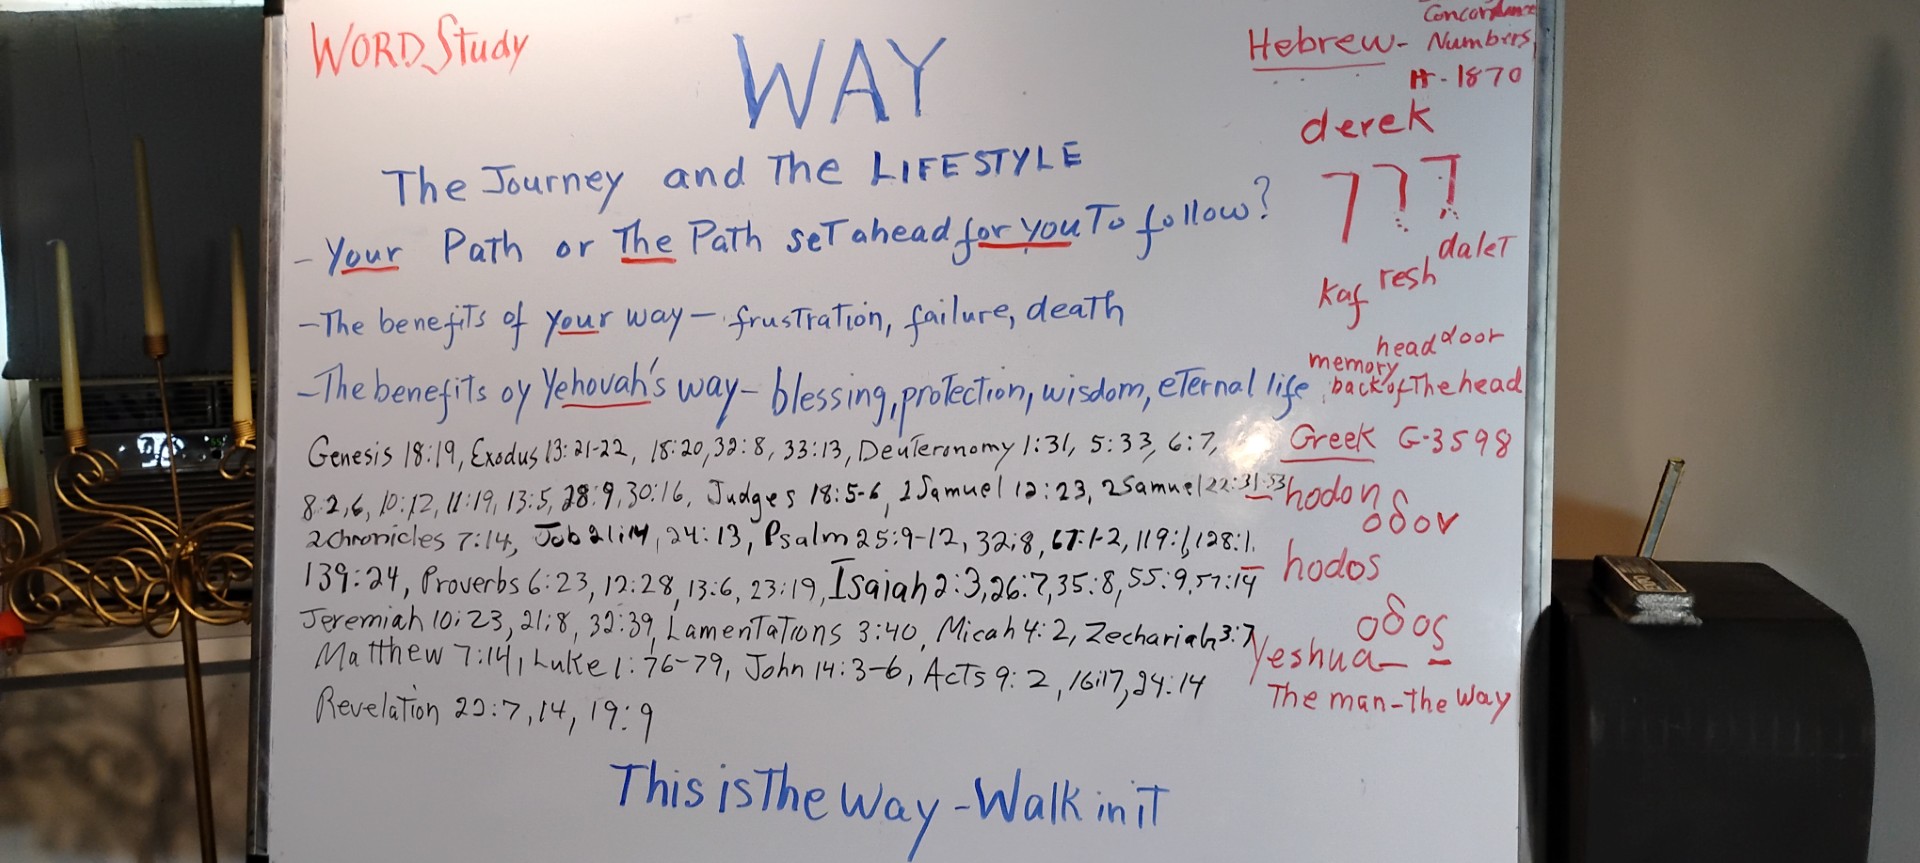 WORD Study
WAY
The Journey and The LIFESTYLE
- Your Path or The Path set ahead for you To follow?
- The benefits of your way - frustration, failure, death
- The benefits oy Yehovah's way - blessing, protection, wisdom, eternal life
Genesis 18:19, Exodus 13:21-22, 18:20, 32:8, 33:13, Deuteronomy 1:31, 5:33, 6:7,
8:2,6, 10:12, 11:19, 13:5, 28:9, 30:16, Judges 18:5-6, 1 Samuel 12:23, 2 Samuel 22:31-33
2 chronicles 7:14, Job 21:14, 24:13, Psalm 25:9-12, 32:8, 67:1-2, 119:1, 128:1,
139:24, Proverbs 6:23, 12:28, 13:6, 23:19, Isaiah 2:3, 26:7, 35:8, 55:9, 57:14
Jeremiah 10:23, 21:8, 32:39, Lamentations 3:40, Micah 4:2, Zechariah 3:7
Matthew 7:14, Luke 1:76-79, John 14:3-6, Acts 9:2, 16:17, 24:14
Revelation 22:7,14, 19:9
This is The Way - Walk in it
Concordance
Hebrew - Numbers
H-1870
derek
דרך
dalet
resh
kaf
head door
memory
back of The head
Greek G-3598
hodon
οδον
hodos
οδος
Yeshua -
The man - the way